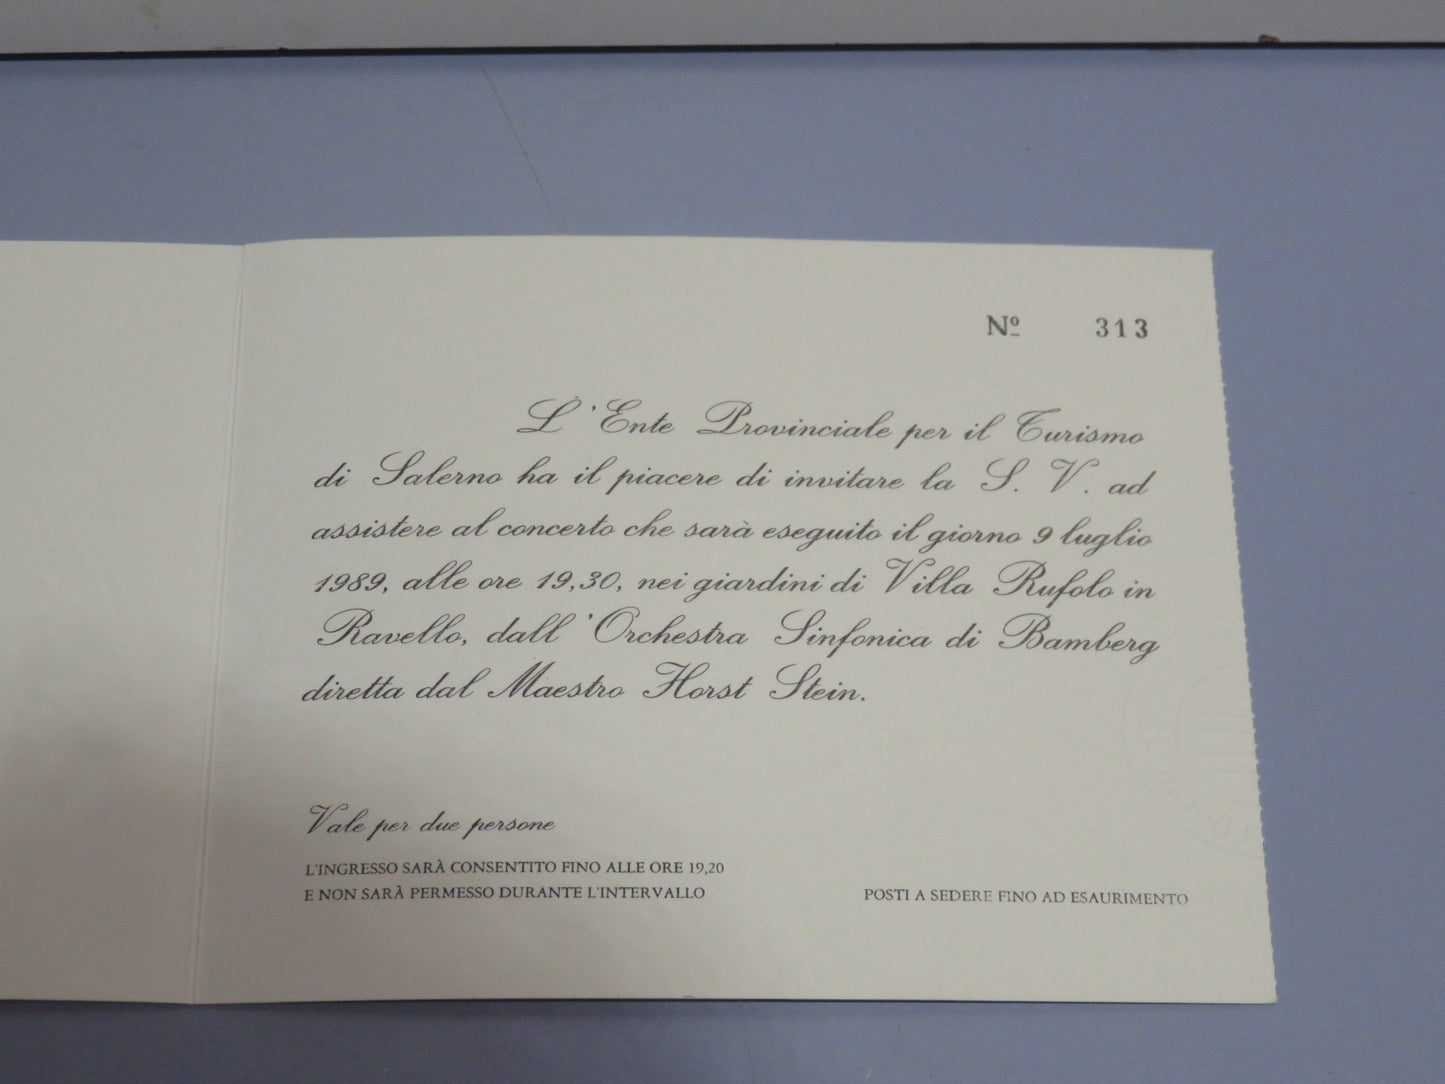 Nº 313
L'Ente Provinciale per il Turismo
di Salerno ha il piacere di invitare la S. V. ad
assistere al concerto che sarà eseguito il giorno 9 luglio
1989, alle ore 19,30, nei giardini di Villa Rufolo in
Ravello, dall'Orchestra Sinfonica di Bamberg
diretta dal Maestro Horst Stein.
Vale per due persone
L'INGRESSO SARÀ CONSENTITO FINO ALLE ORE 19,20
E NON SARÀ PERMESSO DURANTE L'INTERVALLO
POSTI A SEDERE FINO AD ESAURIMENTO